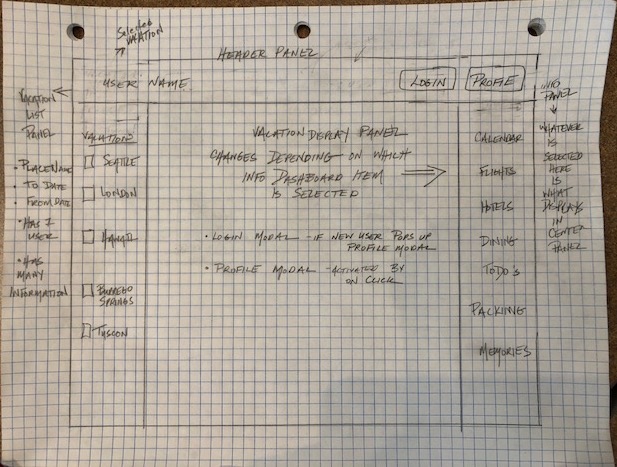 Selected
VACATION
HEADER PANEL
USER NAME
LOGIN
PROFILE
VACATION
LIST
PANEL
• PLACENAME
• TO DATE
• FROM DATE
• HAS 1
USER
• HAS
MANY
INFORMATION
VACATIONS
SEATTLE
LONDON
HAWAII
BORREGO
SPRINGS
TUSCON
VACATION DISPLAY PANEL
CHANGES DEPENDING ON WHICH
INFO DASHBOARD ITEM
IS SELECTED
• LOGIN MODAL - IF NEW USER POPS UP
PROFILE MODAL
• PROFILE MODAL - ACTIVATED BY
ON CLICK
CALENDAR
FLIGHTS
HOTELS
DINING
TODO'S
PACKING
MEMORIES
INFO
PANEL
WHATEVER
IS
SELECTED
HERE
IS
WHAT
DISPLAYS
IN
CENTER
PANEL